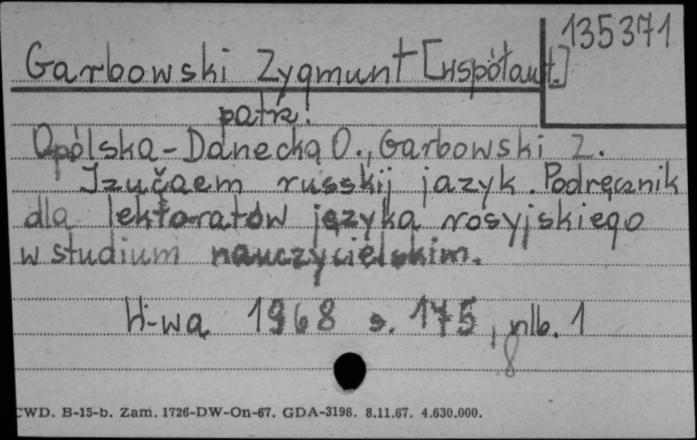 135371
Garbowski Zygmunt [współaut.]
patrz:
Opólska-Danecka O., Garbowski Z.
Izučaem russkij jazyk. Podręcznik
dla lektoratów języka rosyjskiego
w studium nauczycielskim.
W-wa 1968 s. 175, nlb. 1
8
CWD. B-15-b. Zam. 1726-DW-On-67. GDA-3198. 8.11.67. 4.630.000.